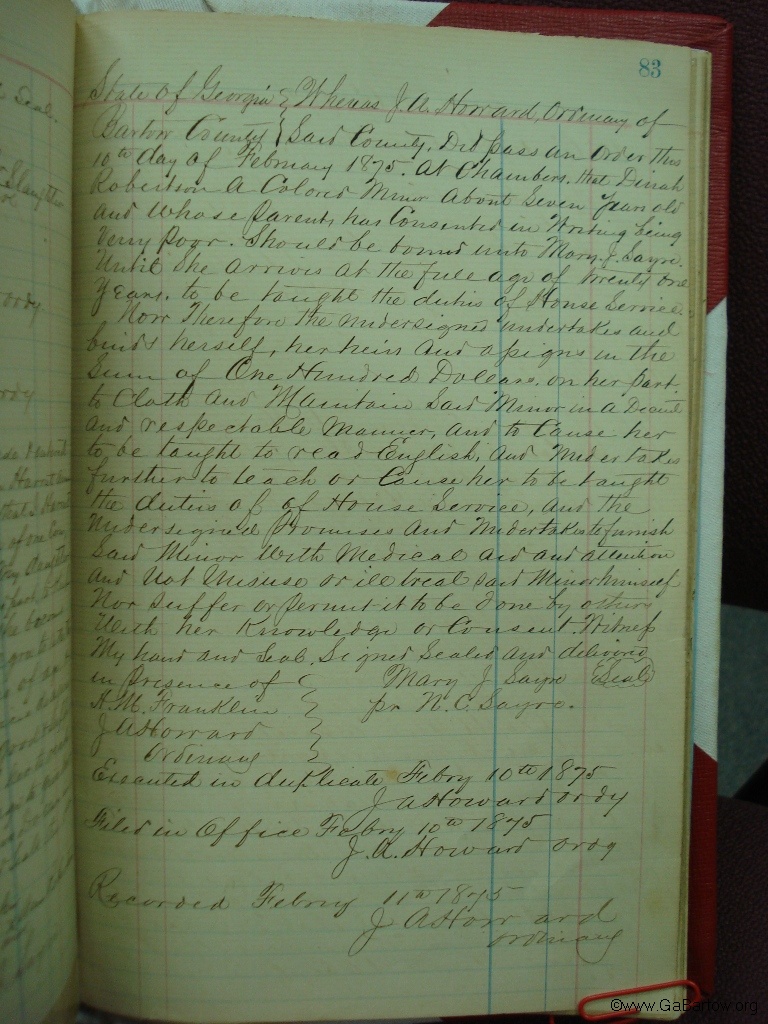 83
State of Georgia } Whereas J. A. Howard, Ordinary of
Bartow County } Said County, Did pass an Order this
10th day of February 1875. At Chambers. that Dinah
Robertson A Colored Minor About Seven Years old
and Whose Parents has Consented in Writing being
Very Poor. Should be bound unto Mary J. Sayre.
Until She arrives at the full age of twenty one
Years. to be taught the duties of House Service.
Now Therefore the undersigned undertakes and
binds herself, her heirs and assigns in the
Sum of One Hundred Dollars. on her part
to Cloth and Maintain Said Minor in a Decent
and respectable manner, and to Cause her
to be taught to read English, and undertakes
further to teach or Cause her to be taught
the duties of of House Service, and the
undersigned Promises and undertakes to furnish
Said Minor With Medical aid and attention
and Not Misuse or ill treat said Minor himself
Nor Suffer or permit it to be done by others
With her Knowledge or Consent. Witness
My hand and Seal. Signed Sealed and delivered
in Presence of } Mary J Sayre Seal
A. M. Franklin } pr N. C. Sayre.
J A Howard }
Ordinary }
Executed in duplicate Febry 10th 1875
J A Howard ordy
Filed in Office Febry 10th 1875
J. A. Howard ordy
Recorded Febry 11th 1875
J A Howard
ordinary
©www.GaBartow.org